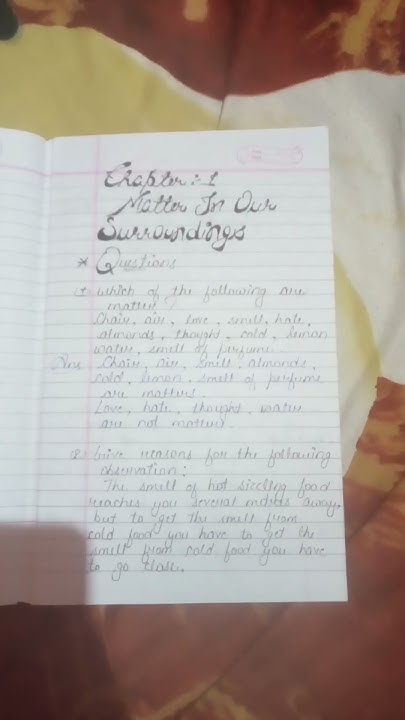 Chapter :- 1
Matter In Our
Surroundings
* Questions
(1) Which of the following are
matter?
Chair, air, love, smell, hate,
almonds, thought, cold, lemon
water, smell of perfume.
Ans Chair, air, smell, almonds,
cold, lemon, smell of perfume
are matters.
Love, hate, thought, water
are not matter.
(2) Give reasons for the following
observation:
The smell of hot sizzling food
reaches you several metres away,
but to get the smell from
cold food you have to get the
smell from cold food you have
to go close.